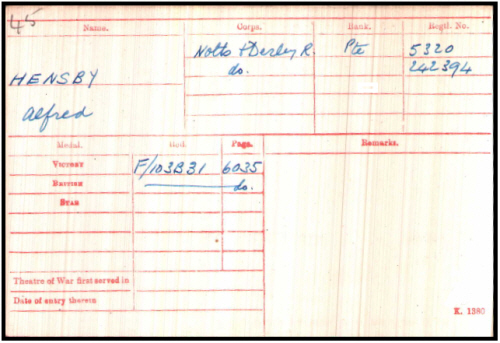 45
Name. Corps. Rank. Regtl. No.
HENSBY Notts & Derby R. Pte 5320
do. 242394
Alfred
Medal. Roll. Page. Remarks.
VICTORY F/103B31 6035
BRITISH do.
STAR
Theatre of War first served in
Date of entry therein
K. 1380